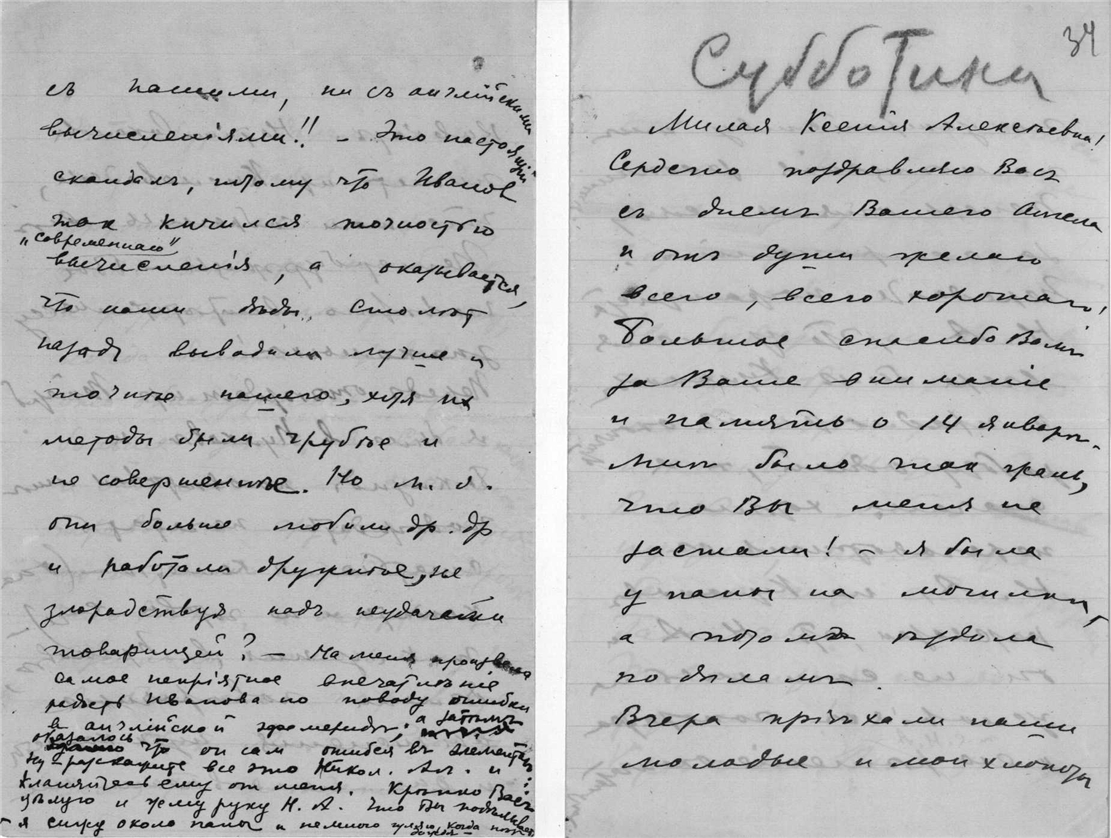 съ нашими, ни съ англійскими
вычисленіями!! – Это настоящій
скандалъ, потому что Ивановъ
такъ кичился точностью
„современнаго“
вычисленія, а оказывается,
что наши дѣды, сто лѣтъ
назадъ выводили лучше и
точнѣе нашего, хотя ихъ
методы были грубѣе и
не совершеннѣе. Но м. б.
они больше любили др. др
и работали дружнѣе, не
злорадствуя надъ неудачами
товарищей? – На меня произвела
самое непріятное впечатлѣніе
радость Иванова по поводу ошибки
в англійской эфемериды, а затѣмъ
оказалось
что он сам ошибся въ элементахъ
Ну разскажите все это Никол. Ал. и
кланяйтесь ему от меня. Крѣпко Васъ
цѣлую и жму руку Н. А. Что Вы подѣлываете
я сижу около папы и немного гуляю, когда
34
Субботина
Милая Ксенія Алексѣевна!
Сердечно поздравляю Васъ
съ днемъ Вашего Ангела
и отъ души желаю
всего, всего хорошаго!
Большое спасибо Вамъ
за Ваше вниманіе
и память о 14 января.
Мнѣ было такъ жаль,
что Вы меня не
застали! – я была
у папы на могилкѣ,
а потомъ ходила
по дѣламъ.
Вчера пріѣхали наши
молодые и мои хлопоты